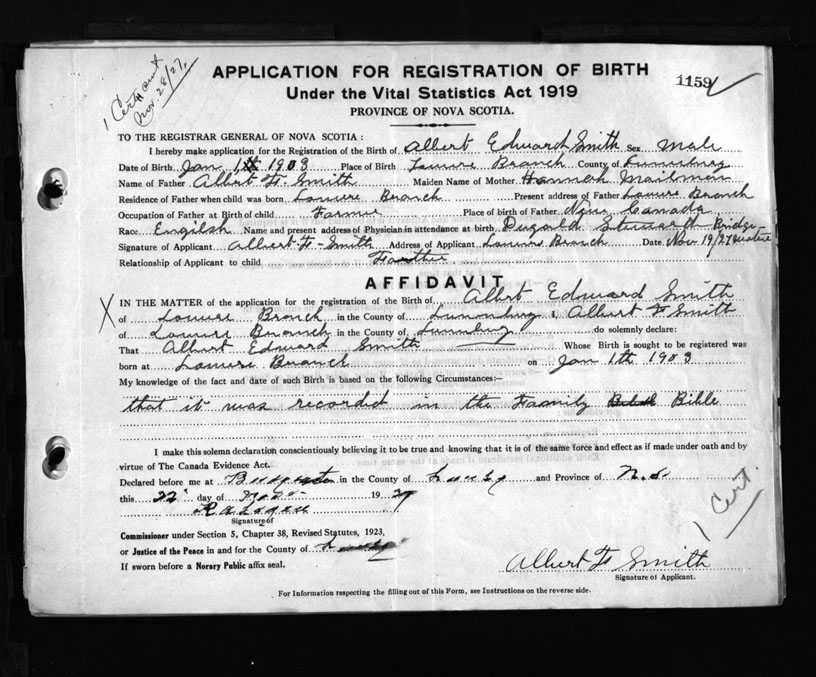 1 Cert out
Nov. 28/27.
APPLICATION FOR REGISTRATION OF BIRTH
1159
Under the Vital Statistics Act 1919
PROVINCE OF NOVA SCOTIA.
TO THE REGISTRAR GENERAL OF NOVA SCOTIA :
I hereby make application for the Registration of the Birth of Albert Edward Smith Sex Male
Date of Birth Jan 1th 1903 Place of Birth Lowere Branch County of Lunenburg
Name of Father Albert F. Smith Maiden Name of Mother Hannah Mailman
Residence of Father when child was born Lowere Branch Present address of Father Lowere Branch
Occupation of Father at Birth of child Farmer Place of birth of Father Canada
Race English Name and present address of Physician in attendance at birth Dugald Stewart Bridgewater
Signature of Applicant Albert F. Smith Address of Applicant Lowere Branch Date Nov 19/27
Relationship of Applicant to child Farther
AFFIDAVIT
X IN THE MATTER of the application for the registration of the Birth of Albert Edward Smith
of Lowere Branch in the County of Lunenburg I, Albert F Smith
of Lowere Branch in the County of Lunenburg do solemnly declare:
That Albert Edward Smith Whose Birth is sought to be registered was
born at Lowere Branch on Jan 1th 1903
My knowledge of the fact and date of such Birth is based on the following Circumstances:—
that it was recorded in the Faamily Bible
I make this solemn declaration conscientiously believing it to be true and knowing that it is of the same force and effect as if made under oath and by
virtue of The Canada Evidence Act.
Declared before me at in the County of and Province of N.S.
this 22 day of Nov 1927
Signature of
Commissioner under Section 5, Chapter 38, Revised Statutes, 1923,
or Justice of the Peace in and for the County of
If sworn before a Norary Public affix seal.
1 Cert.
Albert F Smith
Signature of Applicant.
For Information respecting the filling out of this Form, see Instructions on the reverse side.